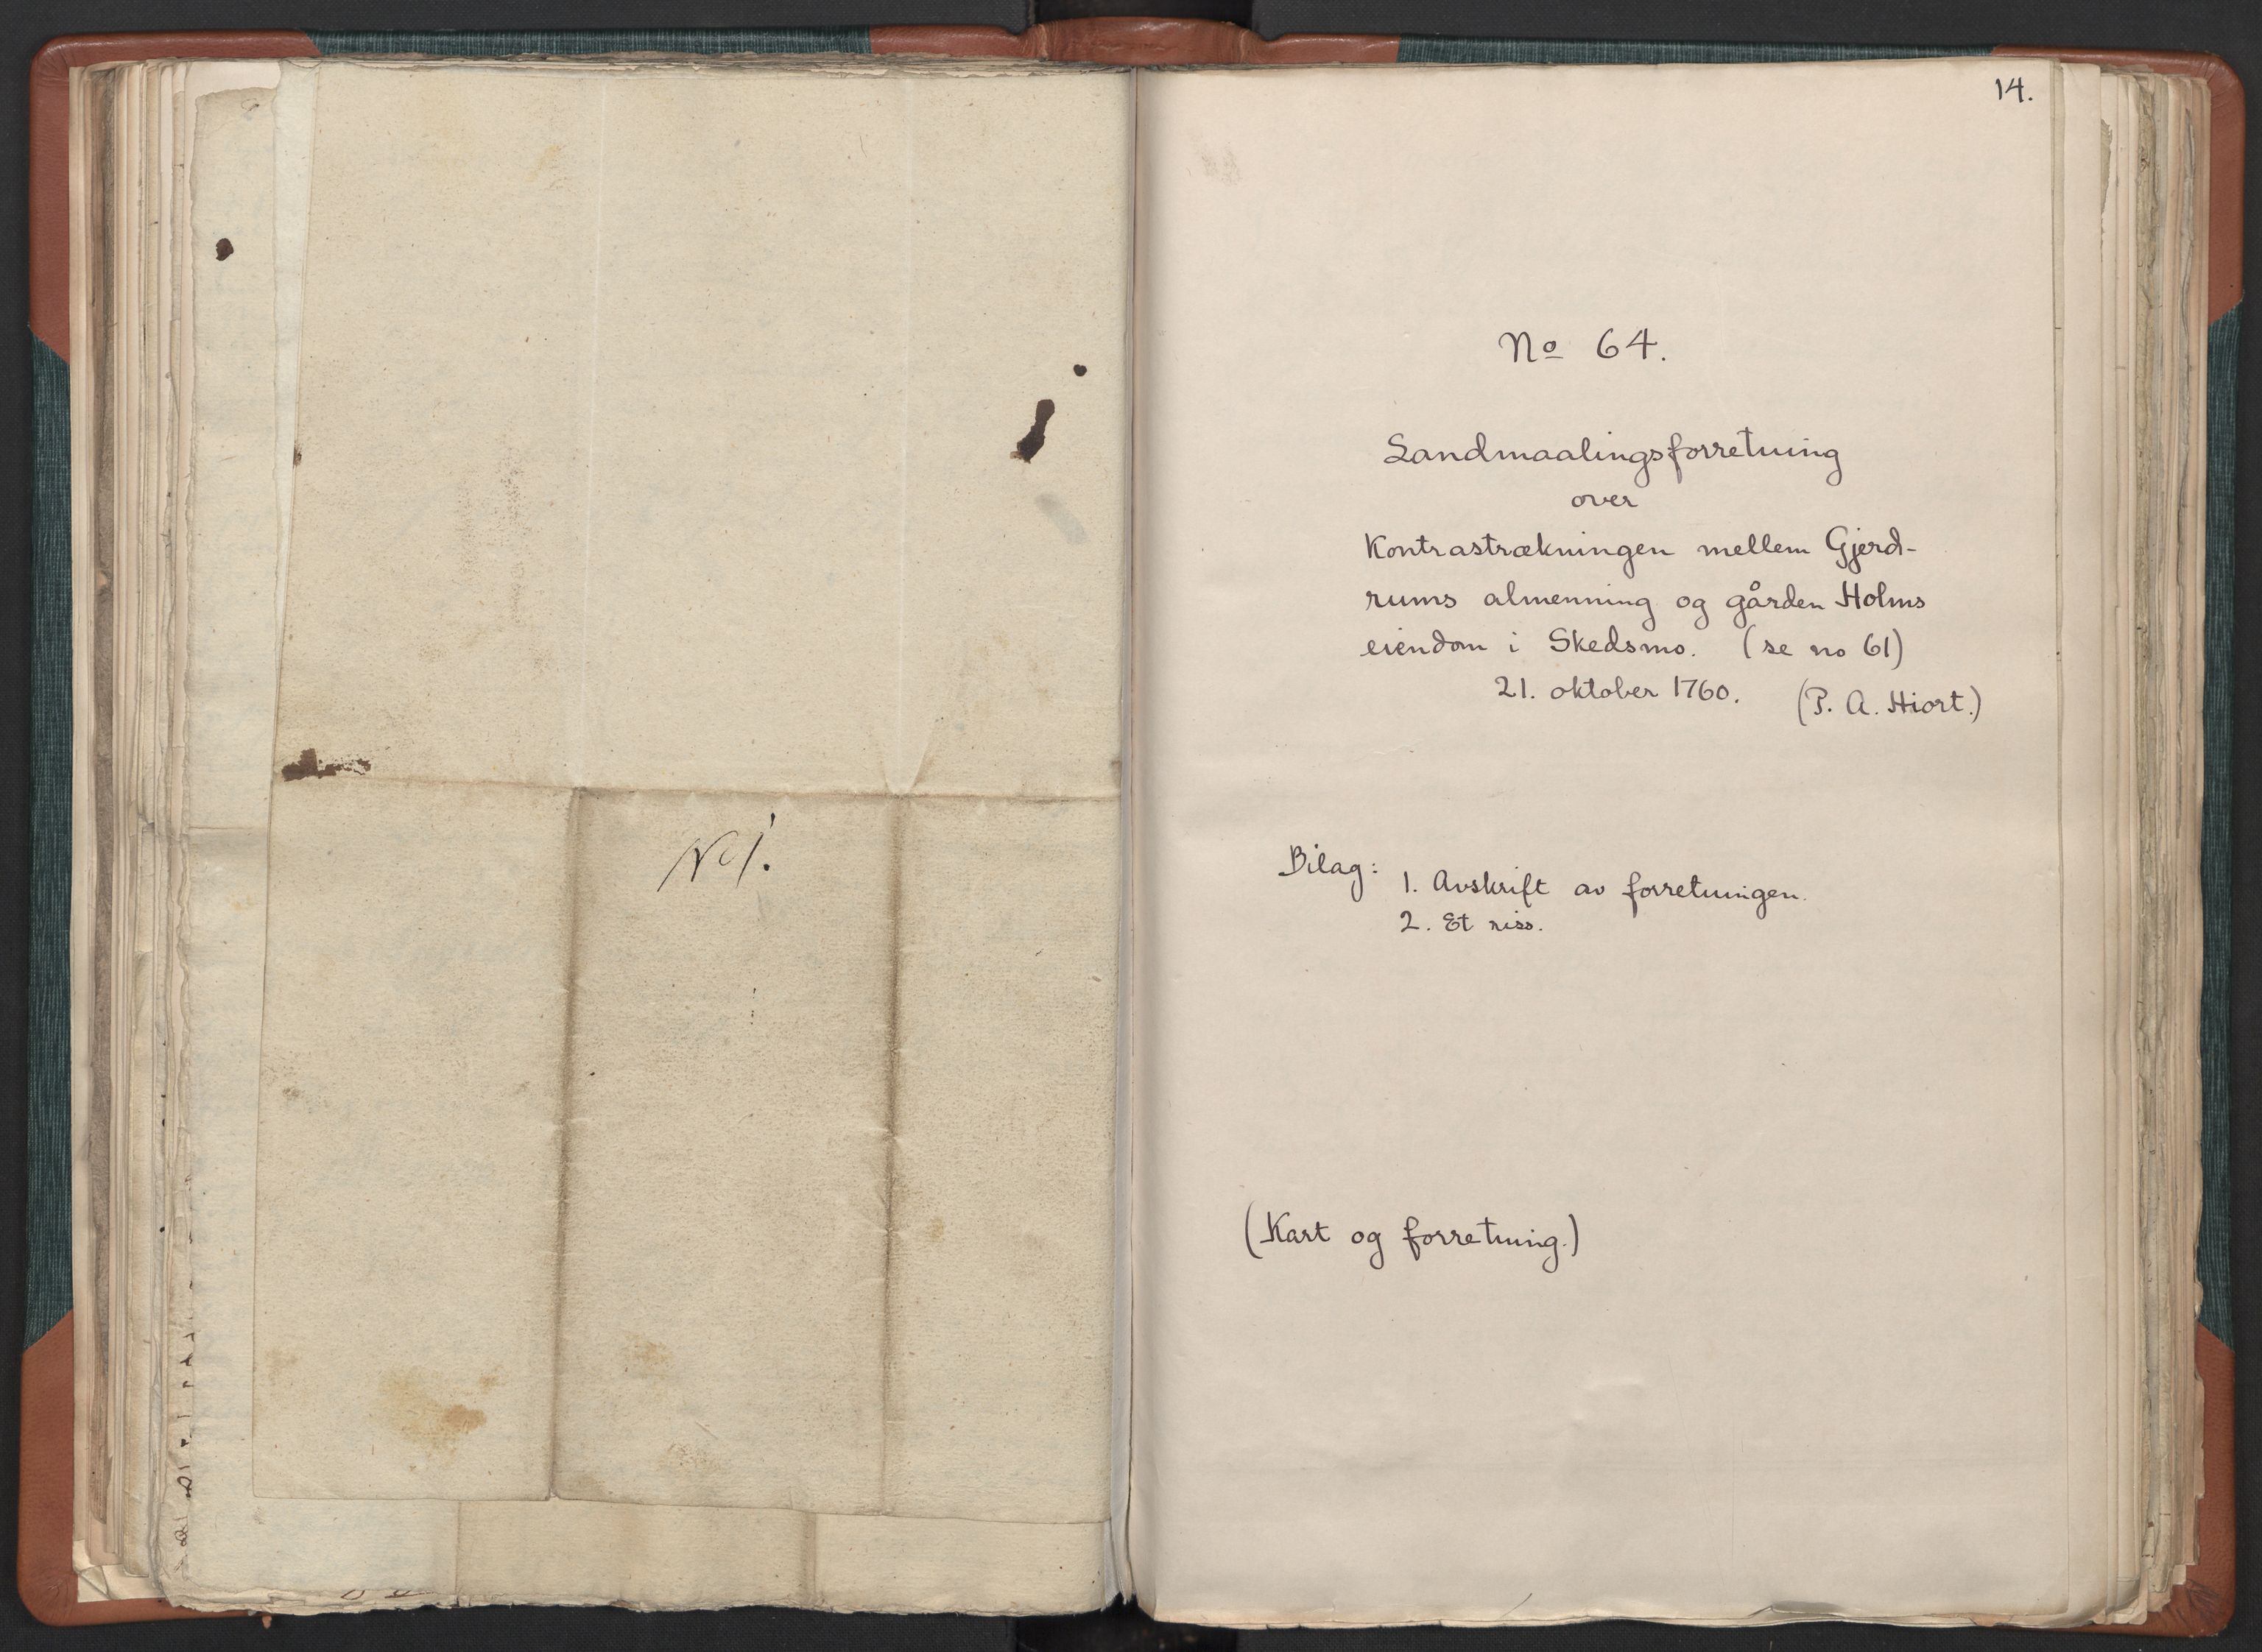 No 1.
14.
No 64.
Landmaalingsforretning
over
Kontrastrækningen mellem Gjerd-
rums almenning og gården Holms
eiendom i Skedsmo. (se no 61)
21. oktober 1760. (P. A. Hiort.)
Bilag:
1. Avskrift av forretningen.
2. Et riss.
(Kart og forretning.)